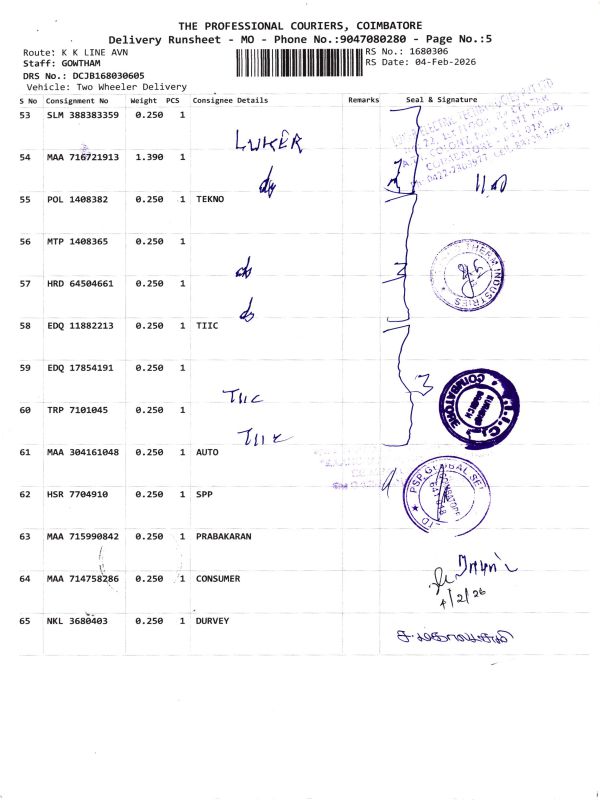 THE PROFESSIONAL COURIERS, COIMBATORE
Delivery Runsheet - MO - Phone No.:9047080280 - Page No.:5
Route: K K LINE AVN
RS No.: 1680306
Staff: GOWTHAM
RS Date: 04-Feb-2026
DRS No.: DCJB168030605
Vehicle: Two Wheeler Delivery
S No Consignment No Weight PCS Consignee Details Remarks Seal & Signature
53 SLM 388383359 0.250 1
LUKER
54 MAA 716721913 1.390 1
55 POL 1408382 0.250 1 TEKNO
56 MTP 1408365 0.250 1
57 HRD 64504661 0.250 1
THERM INDUSTRIES
58 EDQ 11882213 0.250 1 TIIC
59 EDQ 17854191 0.250 1
TIIC
3
60 TRP 7101045 0.250 1
TIIC
COIMBATORE
61 MAA 304161048 0.250 1 AUTO
62 HSR 7704910 0.250 1 SPP
PSP GLOBAL
63 MAA 715990842 0.250 1 PRABAKARAN
64 MAA 714758286 0.250 1 CONSUMER
4/2/26
65 NKL 3680403 0.250 1 DURVEY